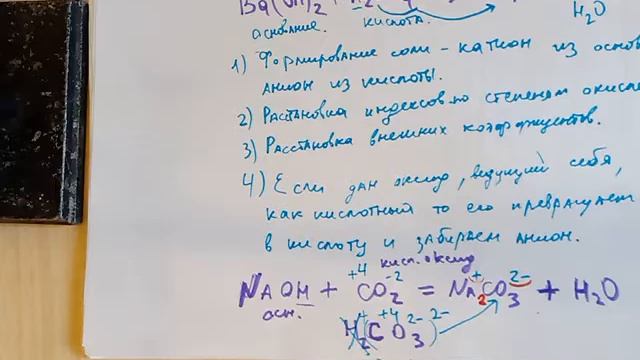 Ba(OH)2 +
H2O
основание. кислота.
1) Формирование соли - катион из основ
анион из кислоты.
2) Растановка индексов по степеням окисле
3) Расстановка внешних коэффициентов.
4) Если дан оксид, ведущий себя,
как кислотный то его превращаем
в кислоту и забираем анион.
кисл. оксид
+4 -2 + 2-
NaOH + CO2 = Na2CO3 + H2O
осн.
+ +4 2- 2-
H2(CO3)